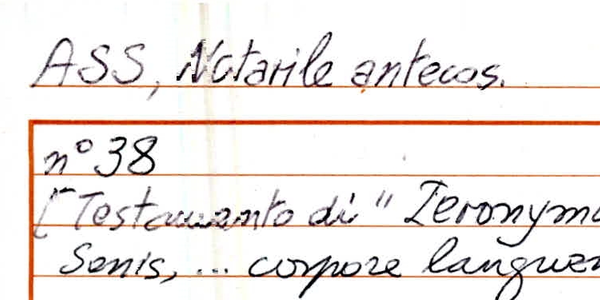 ASS, Notarile antecos.
n° 38
[Testamento di "Ieronymu
Senis, ... corpore languen